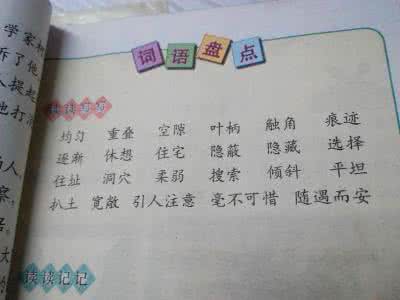 学家
诉了他
人提起
词语盘点
读读写写
均匀 重叠 空隙 叶柄 触角 痕迹
逐渐 休想 住宅 隐蔽 隐藏 选择
住址 洞穴 柔弱 搜索 倾斜 平坦
扒土 宽敞 引人注意 毫不可惜 随遇而安
读读记记